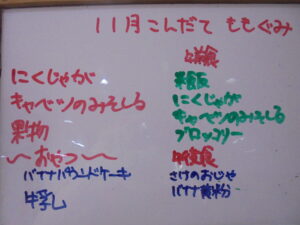 11月こんだて ももぐみ
にくじゃが
キャベツのみそしる
果物
〜おやつ〜
バナナパウンドケーキ
牛乳
米飯
にくじゃが
キャベツのみそしる
ブロッコリー
さけのおじや
バナナ黄粉